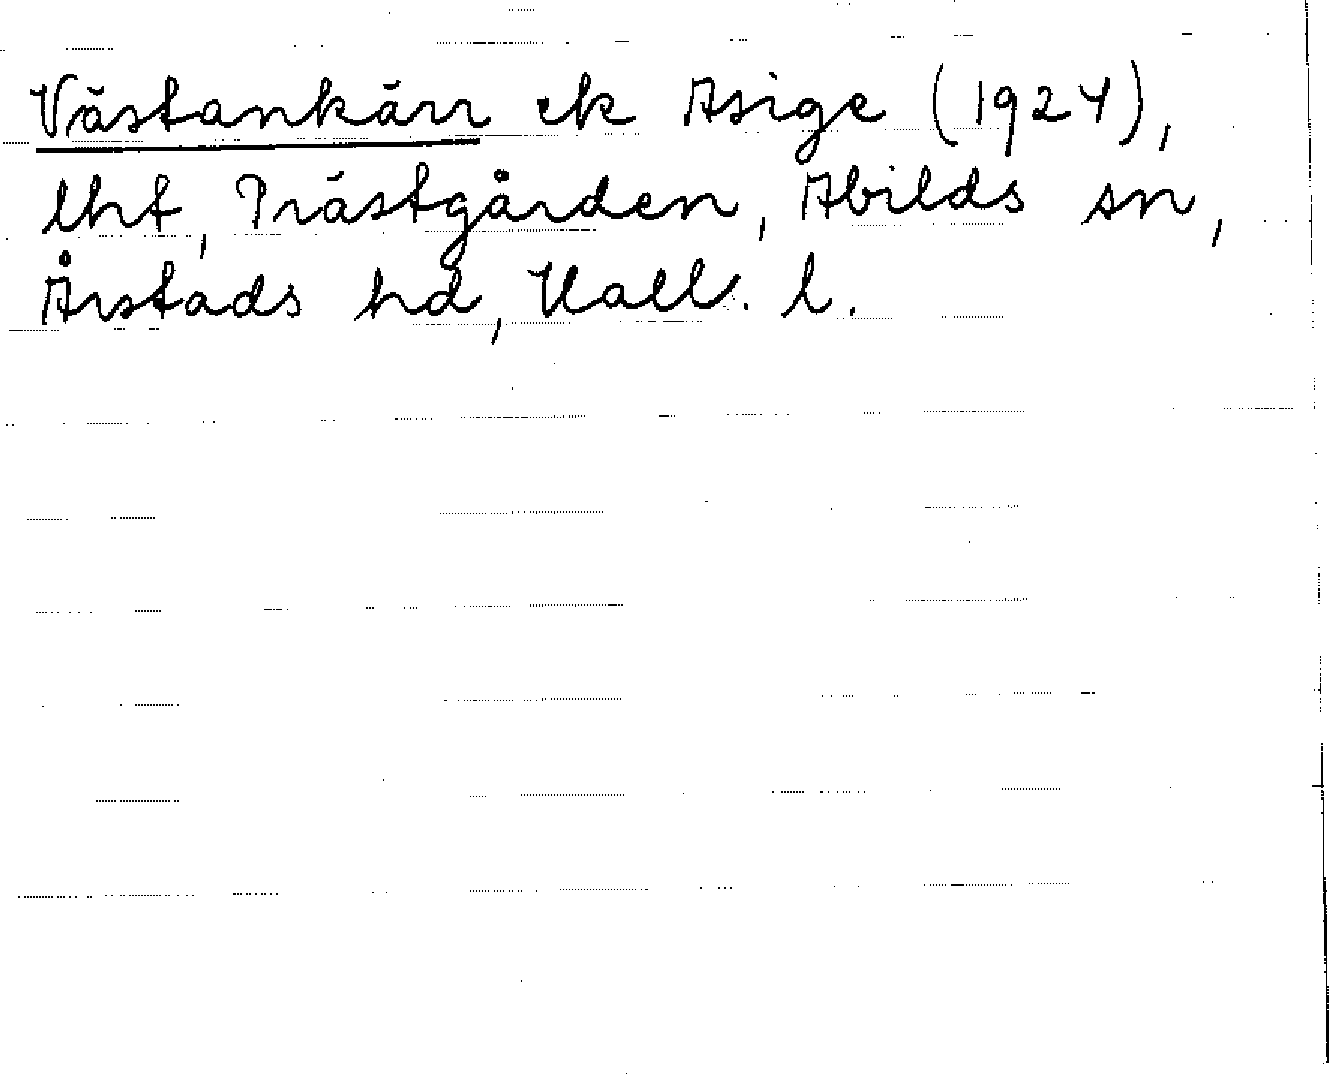 Västankärr ek Asige (1924),
lht, Prästgården, Abilds sn,
Årstads hd, Hall. l.